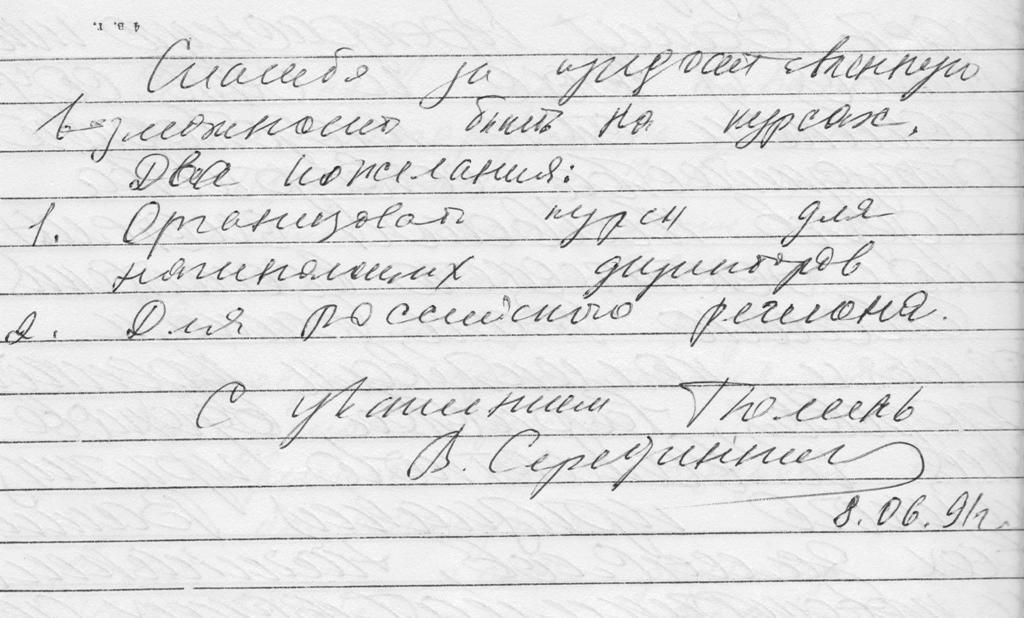 Спасибо за предоставленную
возможность быть на курсах.
Два пожелания:
1. Организовать курсы для
начинающих директоров
2. Для российского региона.
С уважением Тюмень
В.
8.06.91г.